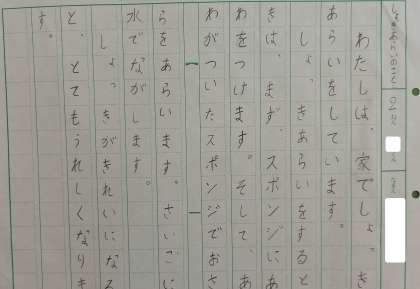 しょっきあらいのこと
わたしは、家でしょっき
あらいをしています。
しょっきあらいをすると
きは、まず、スポンジに
あわをつけます。そして、あ
わがついたスポンジでおさ
らをあらいます。さいごに
水でながします。
しょっきがきれいになる
と、とてもうれしくなりま
す。